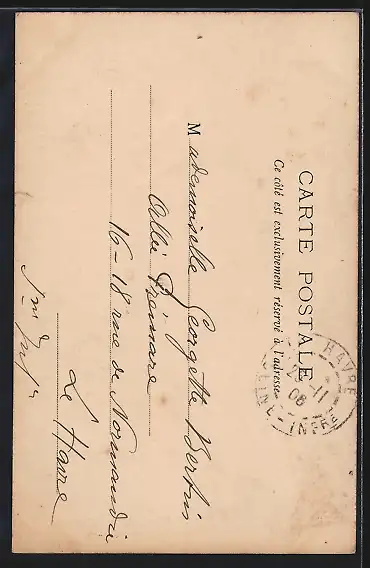 CARTE POSTALE
Ce côté est exclusivement réservé à l'adresse
HAVRE
11
06
Mademoiselle Georgette Bertin
Allée
16-18 rue de Normandie
Le Havre